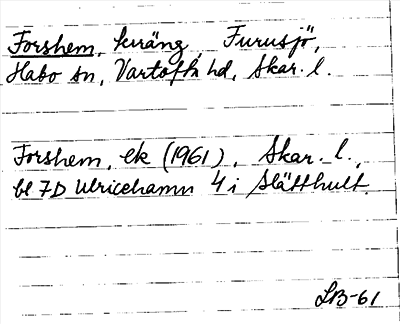 Forshem, kväng, Furusjö,
Habo sn, Vartofta hd, Skar. l.
Forshem, ek (1961), Skar. l.,
bl 7D Ulricehamn 4 i Slätthult.
LB-61